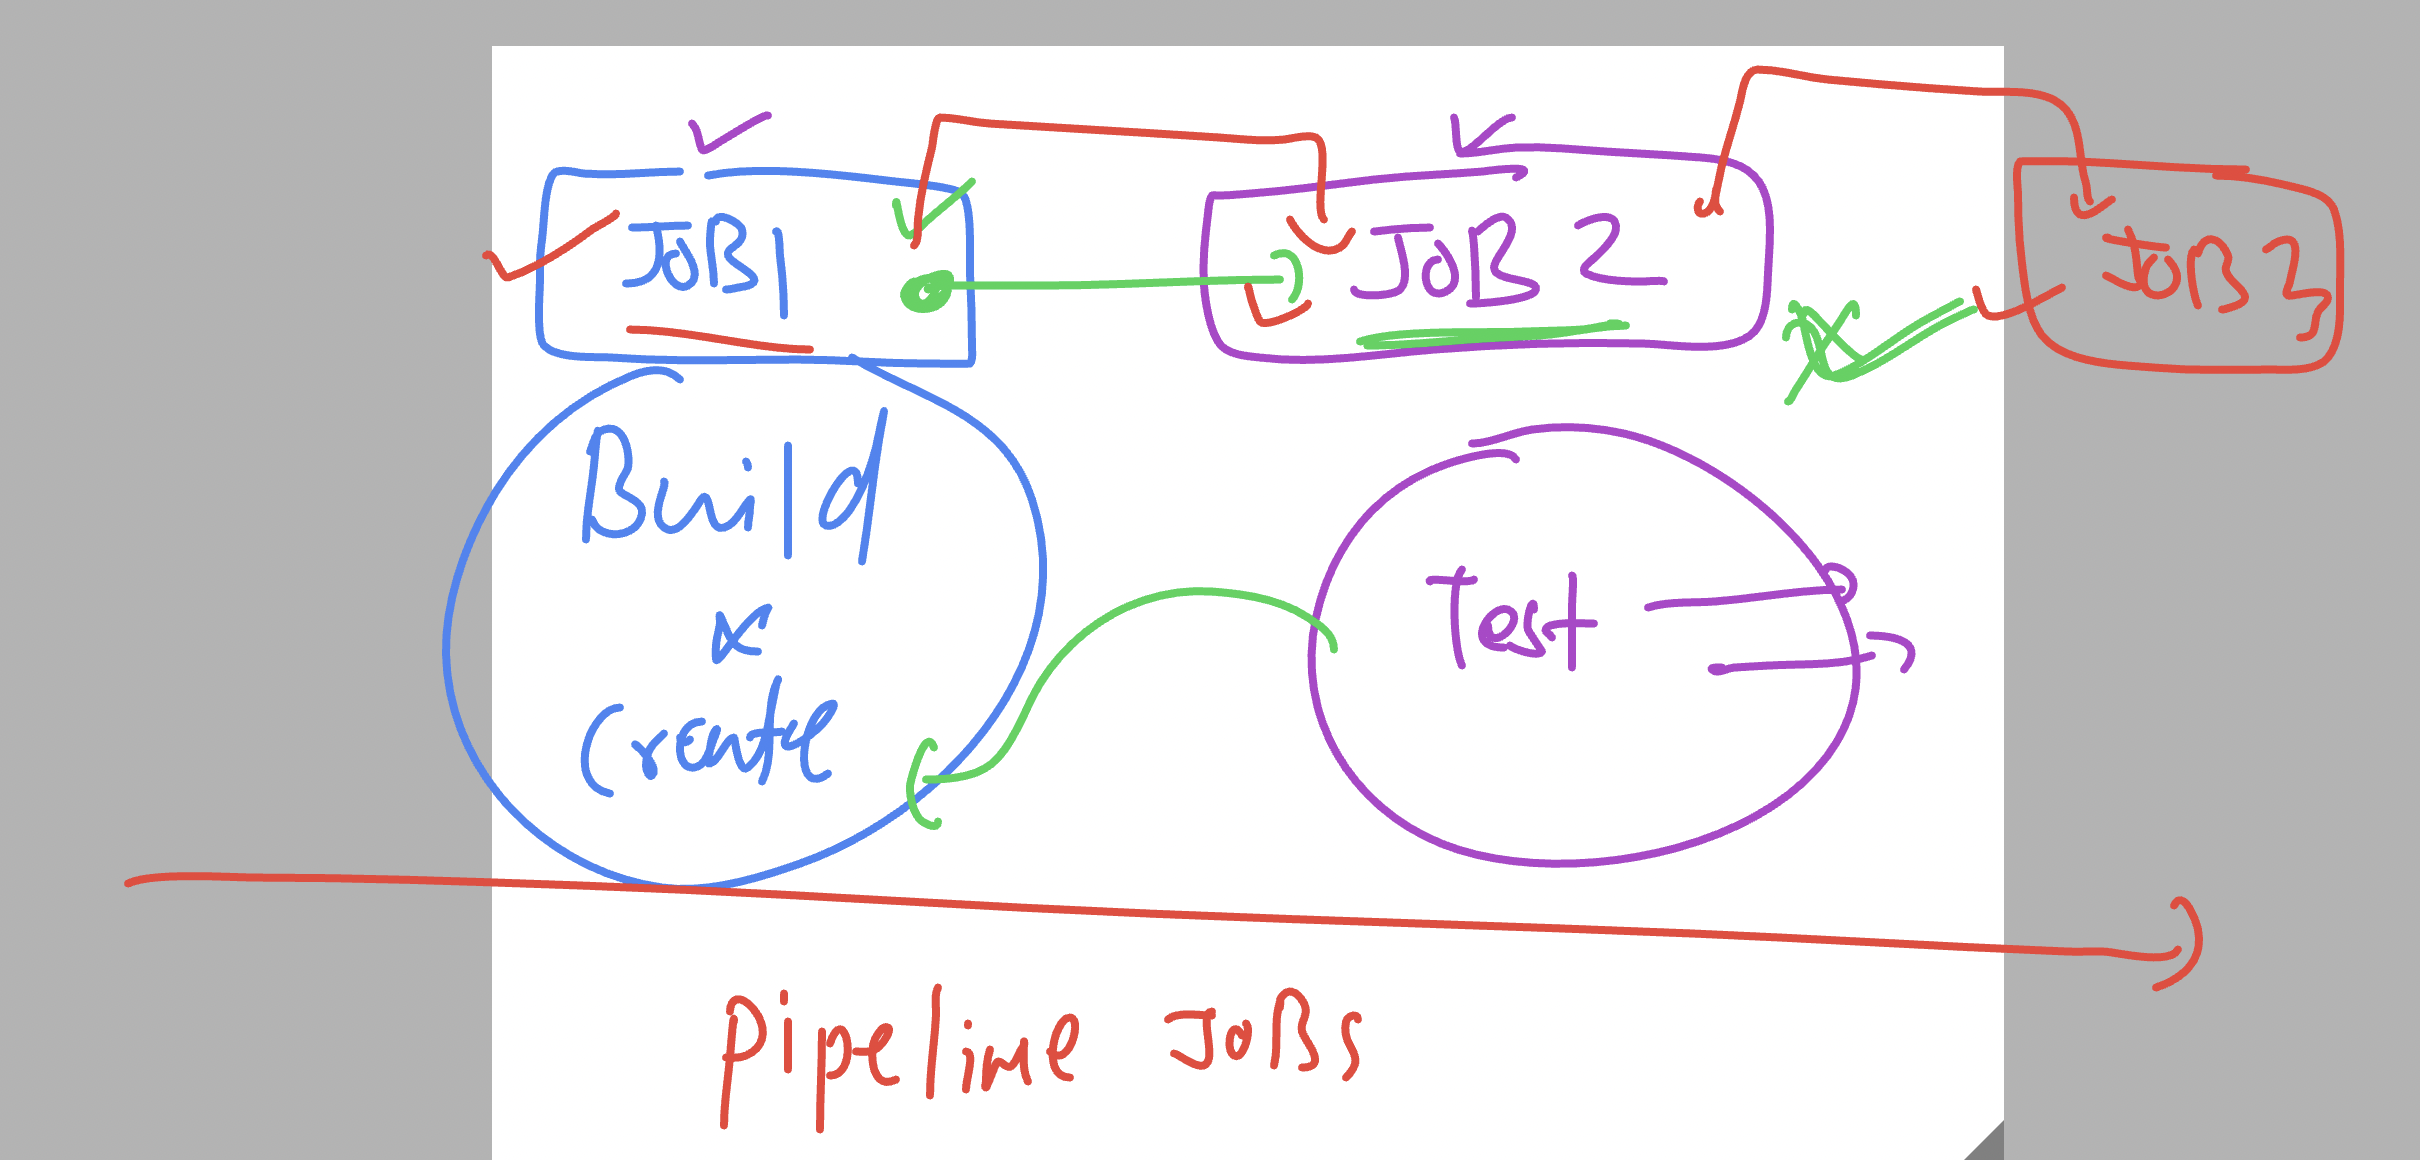 JOB 1
JOB 2
JOB 3
Build
&
Create
Test
Pipeline JOBS